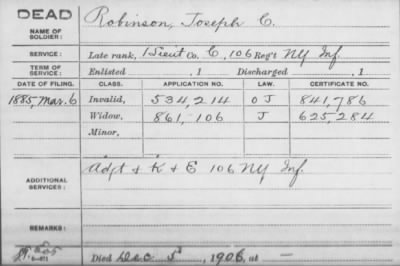 DEAD
NAME OF SOLDIER: Robinson, Joseph C.
SERVICE: Late rank, 1 Lieut Co. C, 106 Reg't NY Inf.
TERM OF SERVICE: Enlisted , 1 Discharged , 1
DATE OF FILING. CLASS. APPLICATION NO. LAW. CERTIFICATE NO.
1885, Mar. 6 Invalid, 534,214 OJ 841,786
Widow, 861,106 J 625,284
Minor,
ADDITIONAL SERVICES: Adjt & K & E 106 NY Inf.
REMARKS:
Died Dec 5, 1906, at —